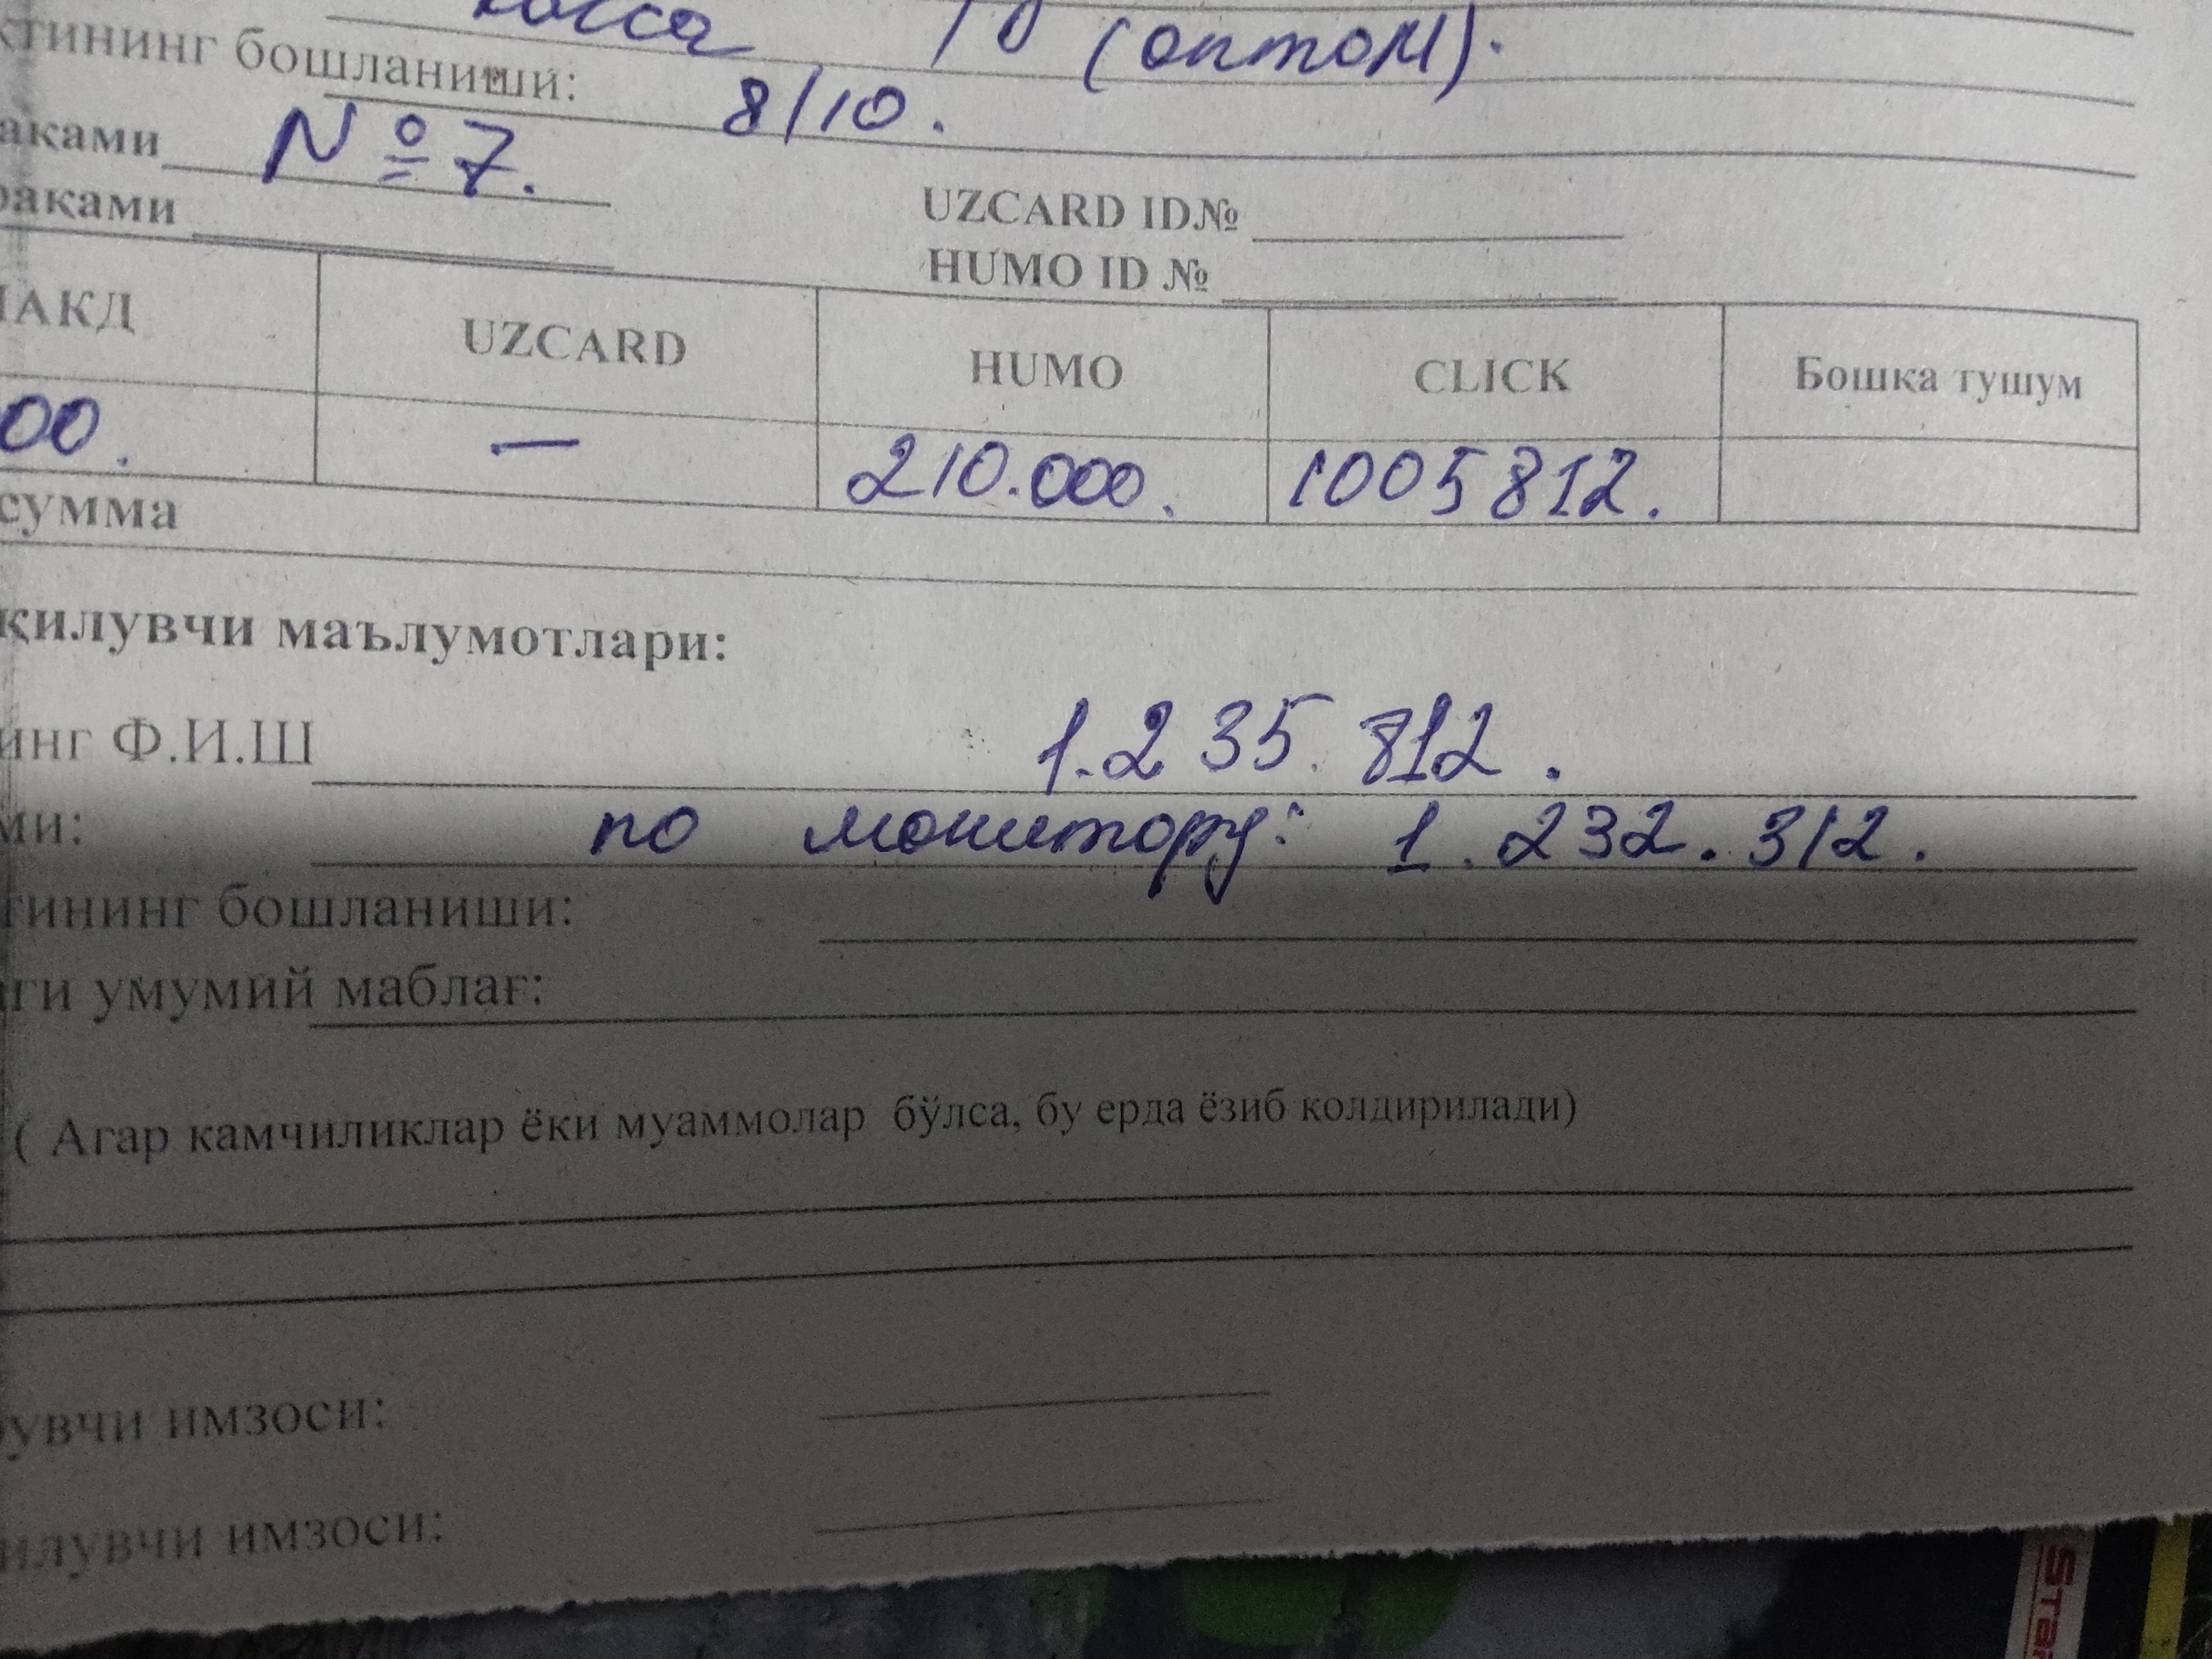 касса 10 (оптом).
ктининг бошланиши: 8/10.
аками № 7.
раками UZCARD ID№
HUMO ID №
НАКД UZCARD HUMO CLICK Бошка тушум
00. — 210.000. 1005812.
сумма
қилувчи маълумотлари:
инг Ф.И.Ш 1.235.812.
ми: по монитору: 1.232.312.
тининг бошланиши:
ги умумий маблағ:
( Агар камчиликлар ёки муаммолар бўлса, бу ерда ёзиб колдирилади)
увчи имзоси:
илувчи имзоси:
Star